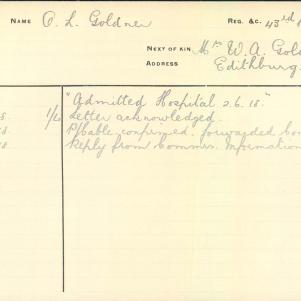 NAME O. L. Goldner REG. &C. 43rd
NEXT OF KIN Mrs W. A. Gold
ADDRESS Edithburg
"Admitted Hospital 2.6.18."
8. 1/20 Letter acknowledged.
8. P/Cable confirmed. forwarded
18 Reply from Commrs. Information